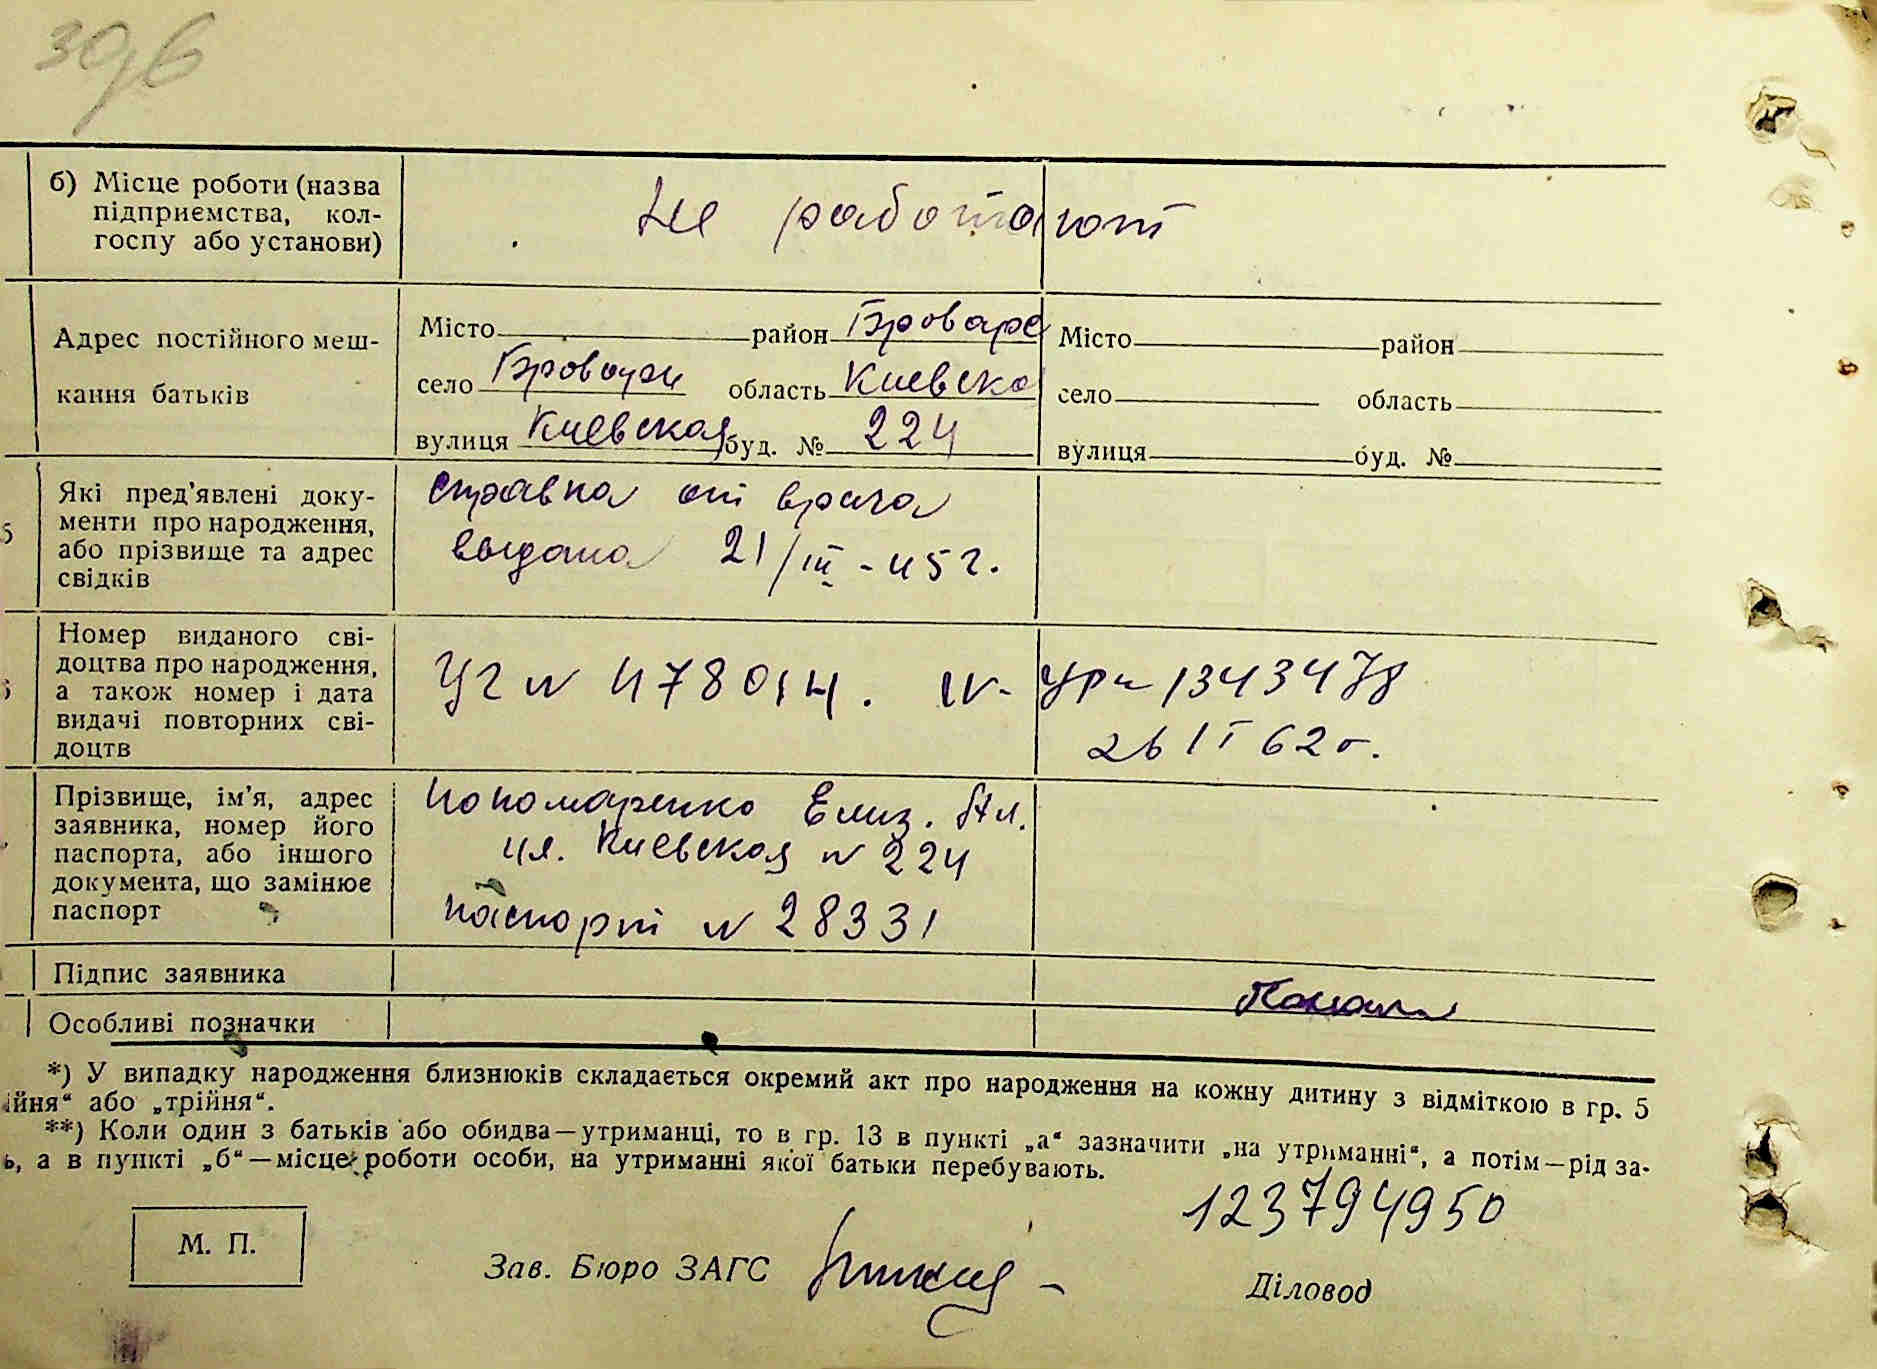 396
б) Місце роботи (назва
підприємства, кол-
госпу або установи)
Не работают
Адрес постійного меш-
кання батьків
Місто район Броваре
село Бровары область Киевска
вулиця Киевская буд. № 224
Місто район
село область
вулиця буд. №
5
Які пред'явлені доку-
менти про народження,
або прізвище та адрес
свідків
справка от врача
выдана 21/III - 45 г.
Номер виданого сві-
доцтва про народження,
а також номер і дата
видачі повторних сві-
доцтв
УГ N 478014.
1343478
26 I 62 г.
Прізвище, ім'я, адрес
заявника, номер його
паспорта, або іншого
документа, що замінює
паспорт
Пономаренко Елиз. Ал.
ул. Киевская N 224
паспорт N 28331
Підпис заявника
Особливі позначки
*) У випадку народження близнюків складається окремий акт про народження на кожну дитину з відміткою в гр. 5
ійня“ або „трійня“.
**) Коли один з батьків або обидва—утриманці, то в гр. 13 в пункті „а“ зазначити „на утриманні“, а потім—рід за-
ь, а в пункті „б“—місце роботи особи, на утриманні якої батьки перебувають.
123794950
М. П.
Зав. Бюро ЗАГС
Діловод